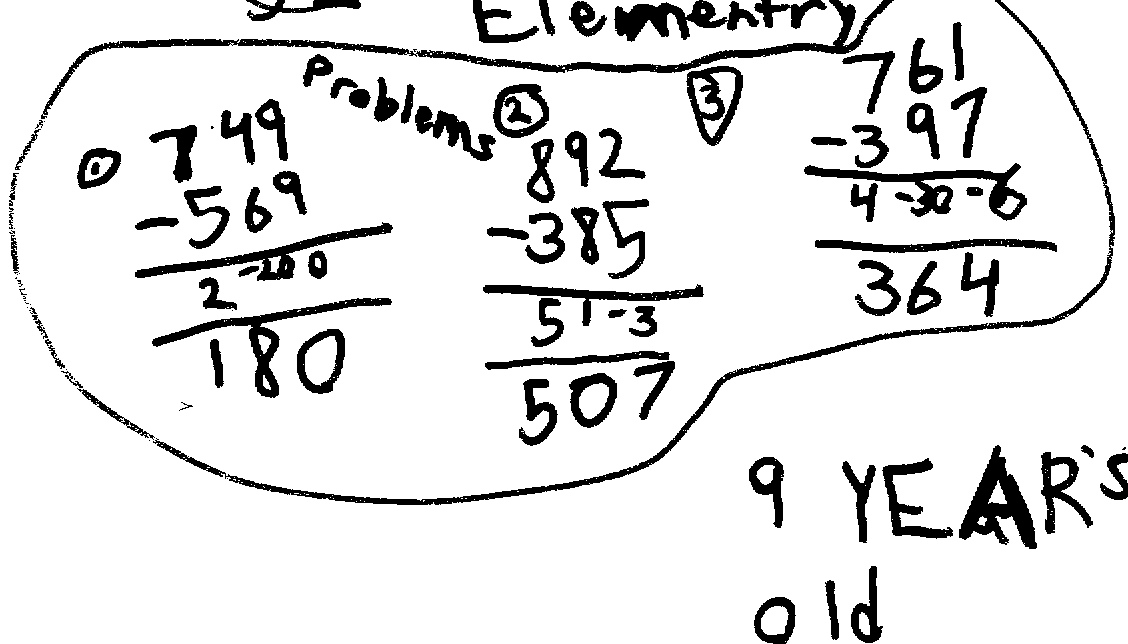 Elementry
Problems
1
749
-569
2 -20 0
180
2
892
-385
5 1 -3
507
3
761
-397
4 -30 -6
364
9 YEAR's
old